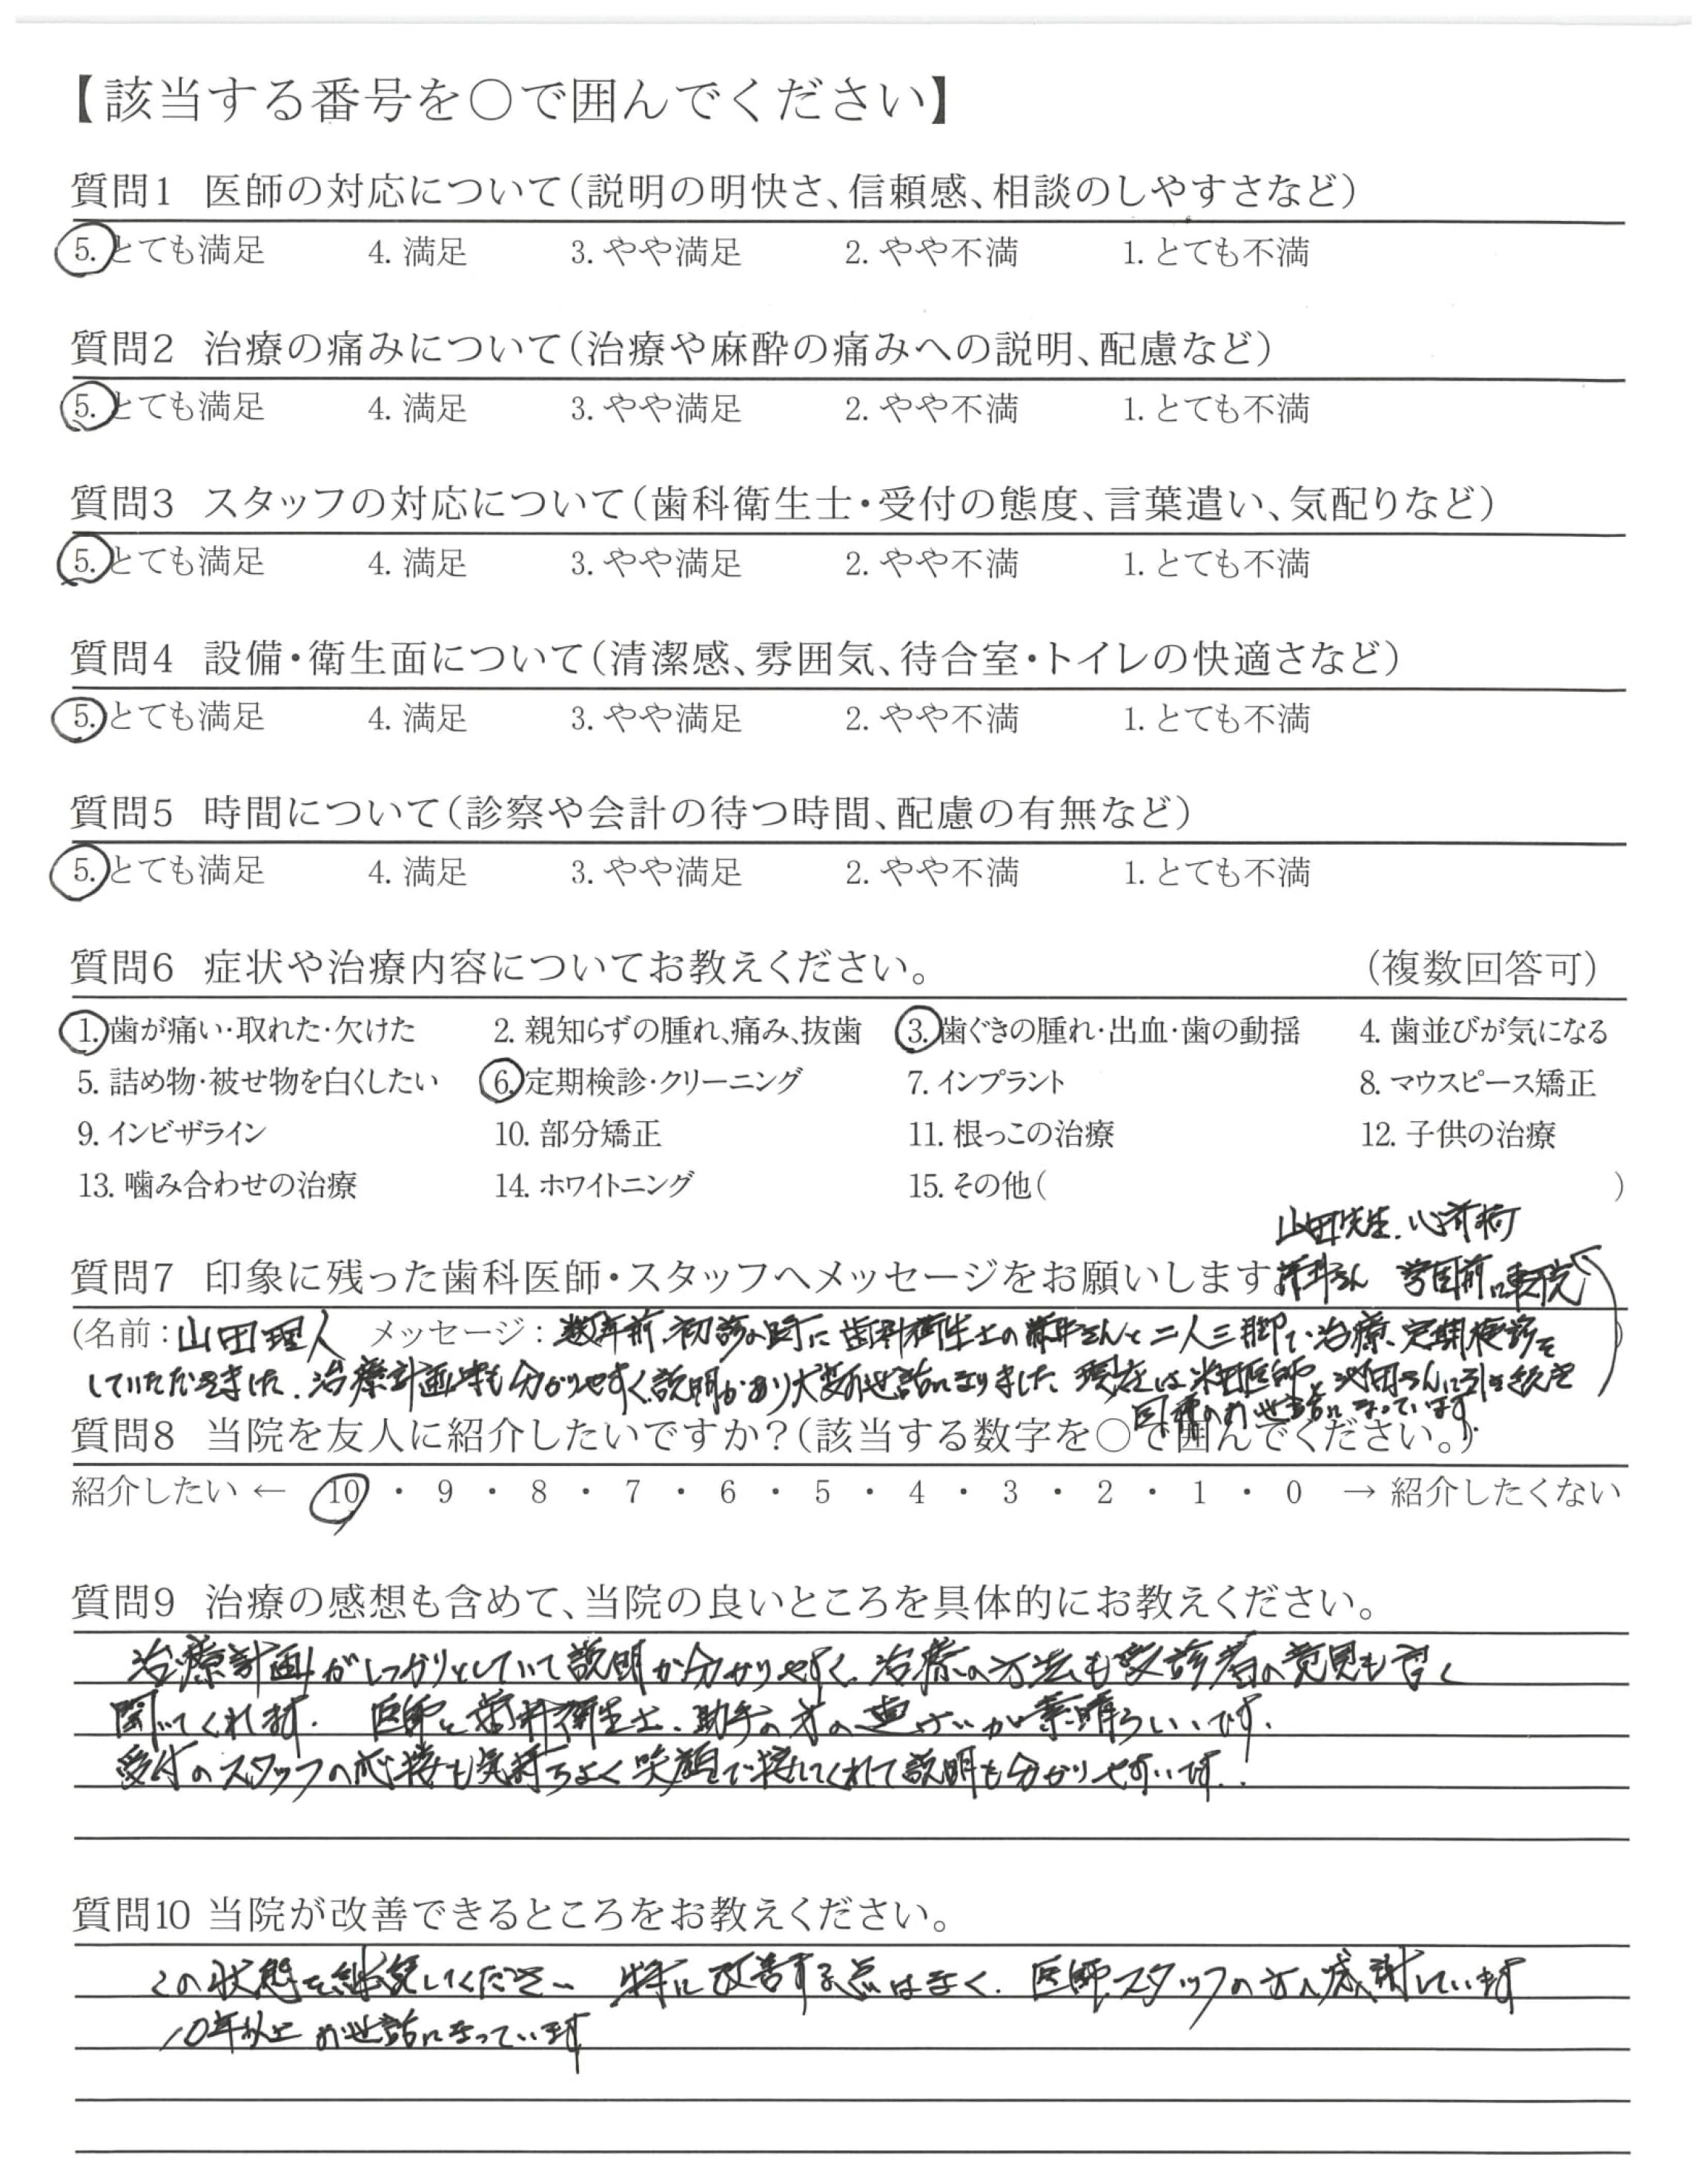 【該当する番号を○で囲んでください】
質問1 医師の対応について(説明の明快さ、信頼感、相談のしやすさなど)
5. とても満足 4. 満足 3. やや満足 2. やや不満 1. とても不満
質問2 治療の痛みについて(治療や麻酔の痛みへの説明、配慮など)
5. とても満足 4. 満足 3. やや満足 2. やや不満 1. とても不満
質問3 スタッフの対応について(歯科衛生士・受付の態度、言葉遣い、気配りなど)
5. とても満足 4. 満足 3. やや満足 2. やや不満 1. とても不満
質問4 設備・衛生面について(清潔感、雰囲気、待合室・トイレの快適さなど)
5. とても満足 4. 満足 3. やや満足 2. やや不満 1. とても不満
質問5 時間について(診察や会計の待つ時間、配慮の有無など)
5. とても満足 4. 満足 3. やや満足 2. やや不満 1. とても不満
質問6 症状や治療内容についてお教えください。 (複数回答可)
1. 歯が痛い・取れた・欠けた 2. 親知らずの腫れ、痛み、抜歯 3. 歯ぐきの腫れ・出血・歯の動揺 4. 歯並びが気になる
5. 詰め物・被せ物を白くしたい 6. 定期検診・クリーニング 7. インプラント 8. マウスピース矯正
9. インビザライン 10. 部分矯正 11. 根っこの治療 12. 子供の治療
13. 噛み合わせの治療 14. ホワイトニング 15. その他( )
山田先生、心斎橋
質問7 印象に残った歯科医師・スタッフへメッセージをお願いします。 さん 転院
(名前:山田理人 メッセージ:数年前 初診の時に歯科衛生士の さんと二人三脚で治療、定期検診を )
していただきました。治療計画等も分かりやすく説明があり大変お世話になりました。現在は 医師と さんに引き続き
同様のお世話になっています。
質問8 当院を友人に紹介したいですか?(該当する数字を○で囲んでください。)
紹介したい ← 10 ・ 9 ・ 8 ・ 7 ・ 6 ・ 5 ・ 4 ・ 3 ・ 2 ・ 1 ・ 0 → 紹介したくない
質問9 治療の感想も含めて、当院の良いところを具体的にお教えください。
治療計画がしっかりとしていて説明が分かりやすく、治療の方法も受診者の意見も良く
聞いてくれます。 医師と歯科衛生士、助手の方の連けいが素晴らしいです。
受付のスタッフの応接も気持ちよく笑顔で接してくれて説明も分かりやすいです。
質問10 当院が改善できるところをお教えください。
この状態を継続してください 特に改善する点はなく、医師、スタッフの方に感謝しています
10年以上お世話になっています